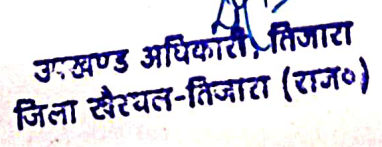 उपखण्ड अधिकारी, तिजारा
जिला खैरथल-तिजारा (राज०)